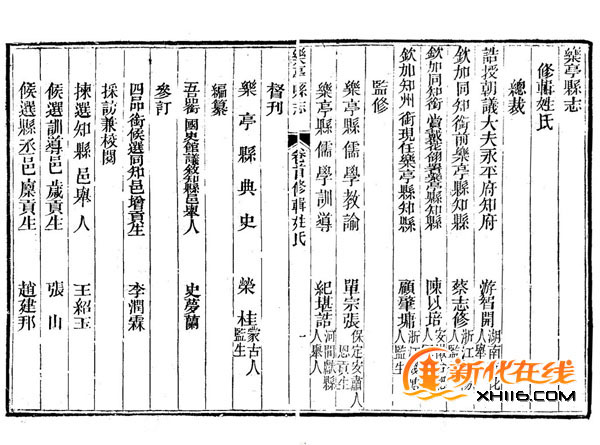 樂亭縣志
修輯姓氏
總裁
誥授朝議大夫永平府知府 游智開 湖南 人舉
欽加同知銜前樂亭縣知縣 蔡志修 浙江 人監
欽加同知銜賞戴花翎署樂亭縣知縣 陳以培 安徽 人
欽加知州銜現任樂亭縣知縣 顧肇墉 浙江 人監生
監修
樂亭縣儒學教諭 單宗張 保定安肅人恩貢生
樂亭縣儒學訓導 紀堪誥 河間獻縣人舉人
樂亭縣志 卷首修輯姓氏 一
督刊
樂亭縣典史 榮桂 蒙古人監生
編纂
五品銜國史館議敘知縣邑舉人 史夢蘭
參訂
四品銜候選同知邑增貢生 李潤霖
採訪兼校閱
揀選知縣邑舉人 王紹玉
候選訓導邑歲貢生 張山
候選縣丞邑廩貢生 趙建邦
新化在線
XHII6.COM